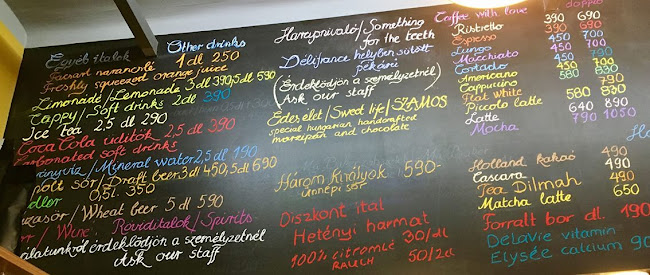 Egyéb italok Other drinks
Facsart narancslé 1 dl 250
Freshly squeezed orange juice
Limonádé/Lemonade 3 dl 390,5dl 590
Cappy/Soft drinks 2dl 390
Ice tea 2,5 dl 290
Coca Cola üdítők 2,5 dl 390
Carbonated soft drinks
/Mineral water 2,5 dl 190
sör/Draft beer 3dl 450,5 dl 690
0,5l 350
/Wheat beer 5 dl 590
/Wine. Röviditalok/Spirits
érdeklődjön a személyzetnél
Ask our staff
Harapnivaló/Something
for the teeth
Délifrance helyben sütött
pékárú
(Érdeklődjön a személyzetnél)
Ask our staff
Édes élet/Sweet life/SZAMOS
special hungarian handcrafted
marzipan and chocolate
Három Királyok 590-
ünnepi sör
Diszkont ital
Hetényi harmat
100% citromlé 30/dl
50/2cl
Coffee with love doppio
Ristretto 390 690
Espresso 390 590
Lungo 450 700
Macchiato 450 700
Cortado 450 700
Americano 580 830
Cappuccino 790
Flat white 790
Piccolo latte 580 830
Latte 640 890
Mocha 790 1050
Holland kakaó 490
Cascara 490
Tea Dilmah 490
Matcha latte 650
Forralt bor dl. 190
DeLaVie vitamin
Elysée calcium 90